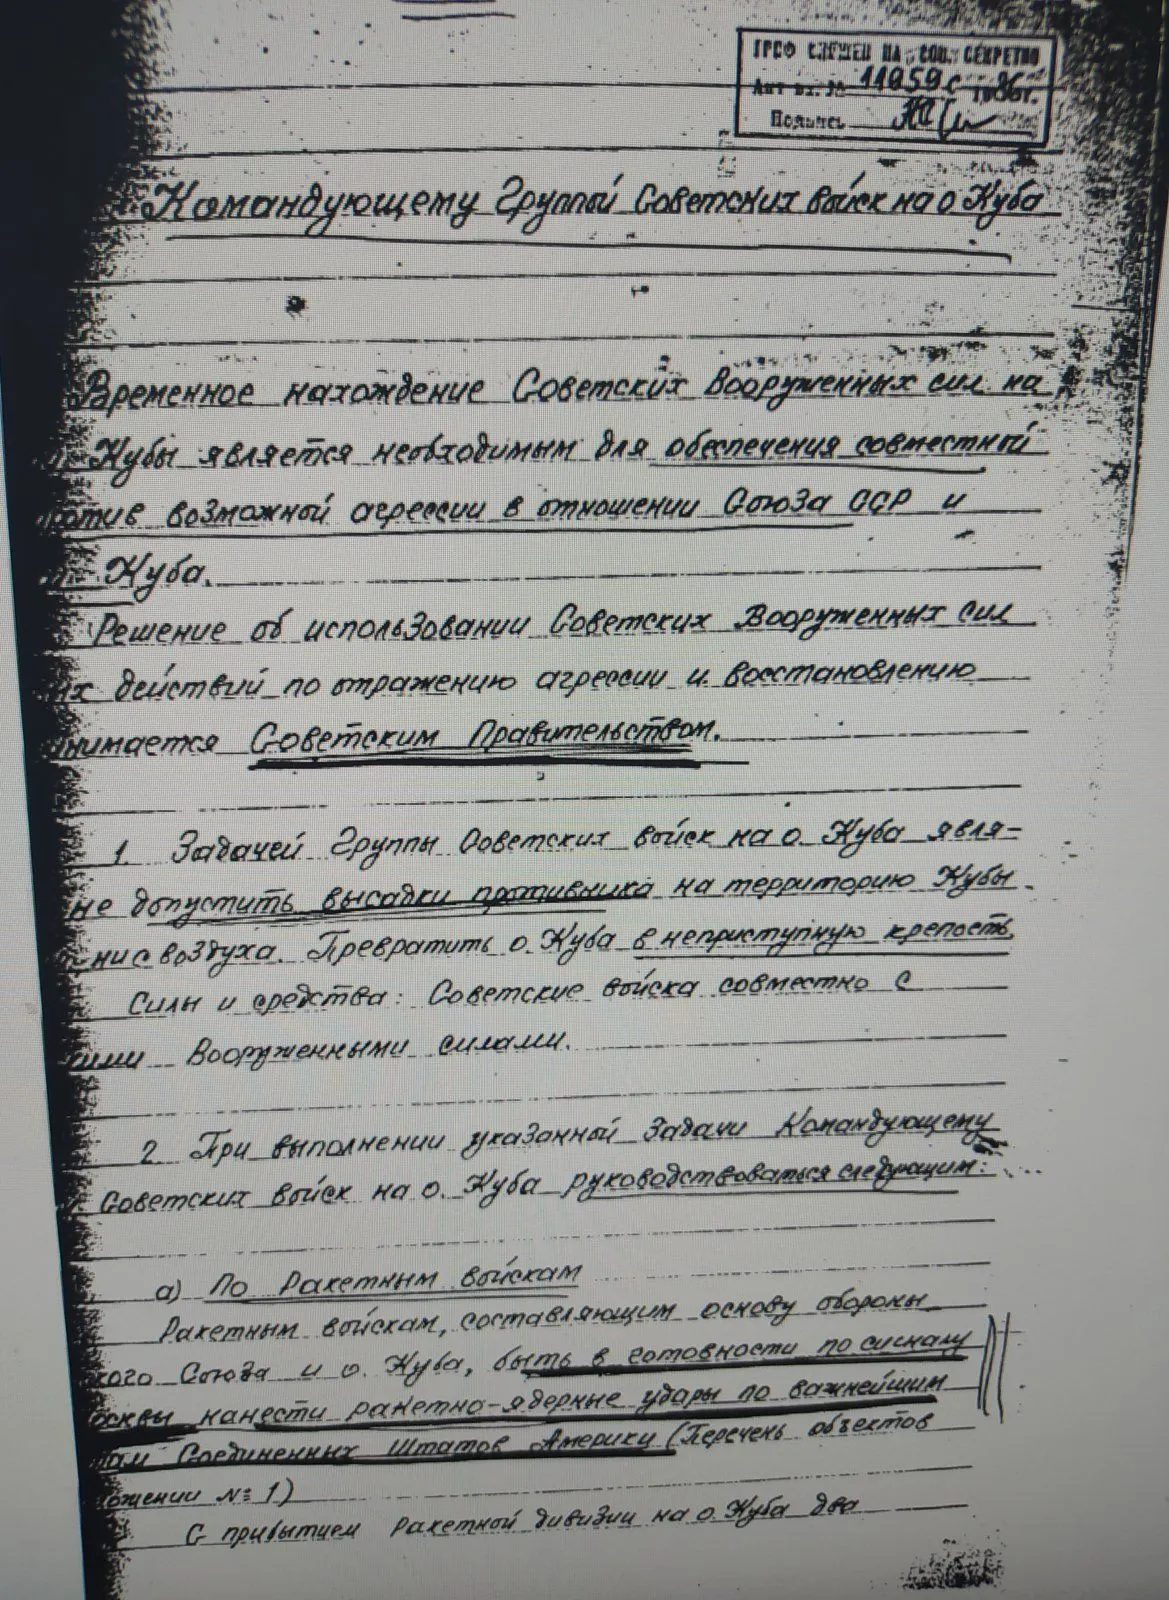 ГРИФ СЕКРЕТНО
Акт вх. № 11959с 1986г.
Подпись
Командующему Группой Советских войск на о. Куба
Временное нахождение Советских Вооруженных сил на
Кубы является необходимым для обеспечения совместной
против возможной агрессии в отношении Союза ССР и
Куба.
Решение об использовании Советских Вооруженных сил
их действий по отражению агрессии и восстановлению
инимается Советским Правительством.
1. Задачей Группы Советских войск на о. Куба явля-
не допустить высадки противника на территорию Кубы
ни с воздуха. Превратить о. Куба в неприступную крепость.
Силы и средства: Советские войска совместно с
ими Вооруженными силами.
2. При выполнении указанной задачи Командующему
Советских войск на о. Куба руководствоваться следующим:
а) По Ракетным войскам
Ракетным войскам, составляющим основу обороны
кого Союза и о. Куба, быть в готовности по сигналу
осквы нанести ракетно-ядерные удары по важнейшим
там Соединенных Штатов Америки (Перечень объектов
ожении № 1)
С прибытием Ракетной дивизии на о. Куба два